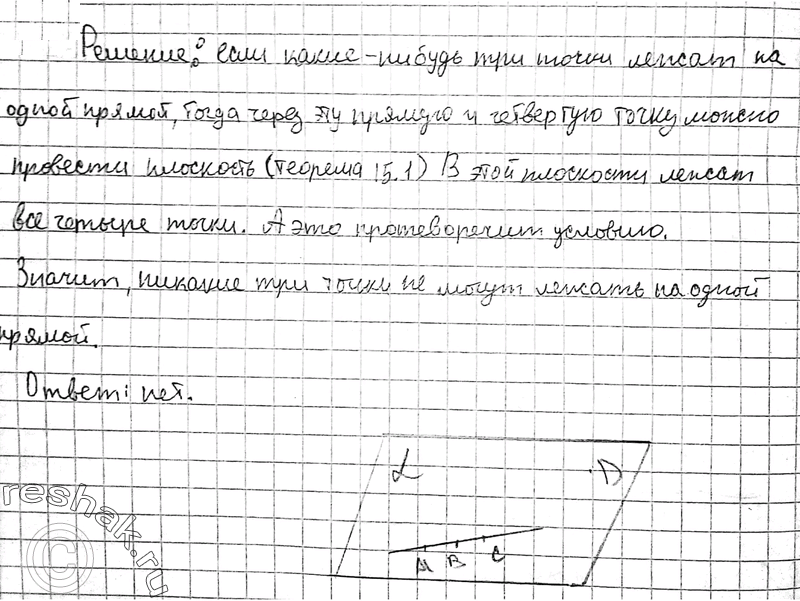 Решение: если какие-нибудь три точки лежат на
одной прямой, тогда через эту прямую и четвертую точку можно
провести плоскость (теорема 15.1) В этой плоскости лежат
все четыре точки. А это протеворечит условию.
Значит, никакие три точки не могут лежать на одной
прямой.
Ответ: нет.
α
D
A B C
reshak.ru
©